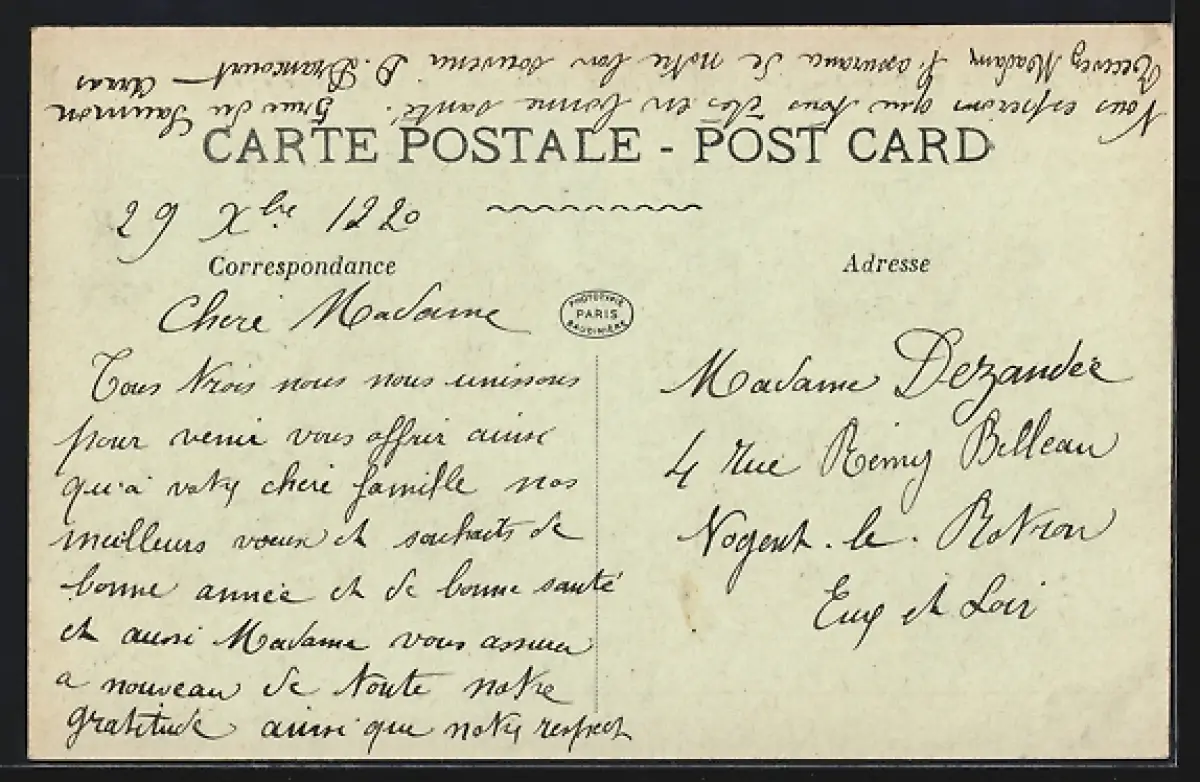 Nous esperons que vous êtes en bonne santé. 5 rue du Saumon
Recevez Madame l'assurance de notre bon souvenir D. Drancourt — Arras
CARTE POSTALE - POST CARD
29 Xbre 1920
Correspondance
Adresse
PHOTOTYPIE
PARIS
BAUDINIÈRE
Cheré Madame
Tous trois nous nous unissons
pour venir vous offrir ainsi
qu'a votre cheré famille nos
meilleurs voeux et souhaits de
bonne année et de bonne santé
et aussi Madame vous assurer
a nouveau de toute notre
gratitude ainsi que notre respect
Madame Dezandée
4 rue Rémy Belleau
Nogent. le. Rotrou
Eure et Loir